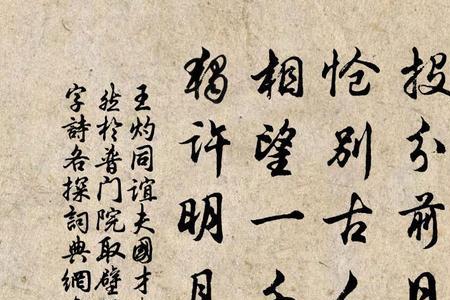 投分前日
怆别古人
相望一千
独许明月
王灼同谊夫國才
然於普門院取壁
字詩各探詞典網